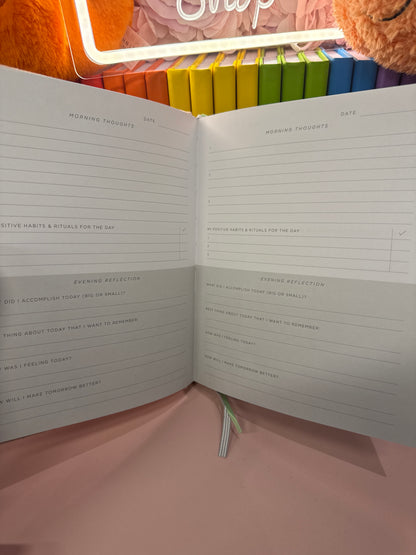 Shop
MORNING THOUGHTS
DATE
SITIVE HABITS & RITUALS FOR THE DAY
EVENING REFLECTION
DID I ACCOMPLISH TODAY (BIG OR SMALL)?
THING ABOUT TODAY THAT I WANT TO REMEMBER
WAS I FEELING TODAY?
WILL I MAKE TOMORROW BETTER?
MORNING THOUGHTS
DATE
MY POSITIVE HABITS & RITUALS FOR THE DAY
EVENING REFLECTION
WHAT DID I ACCOMPLISH TODAY (BIG OR SMALL)?
BEST THING ABOUT TODAY THAT I WANT TO REMEMBER
HOW WAS I FEELING TODAY?
HOW WILL I MAKE TOMORROW BETTER?